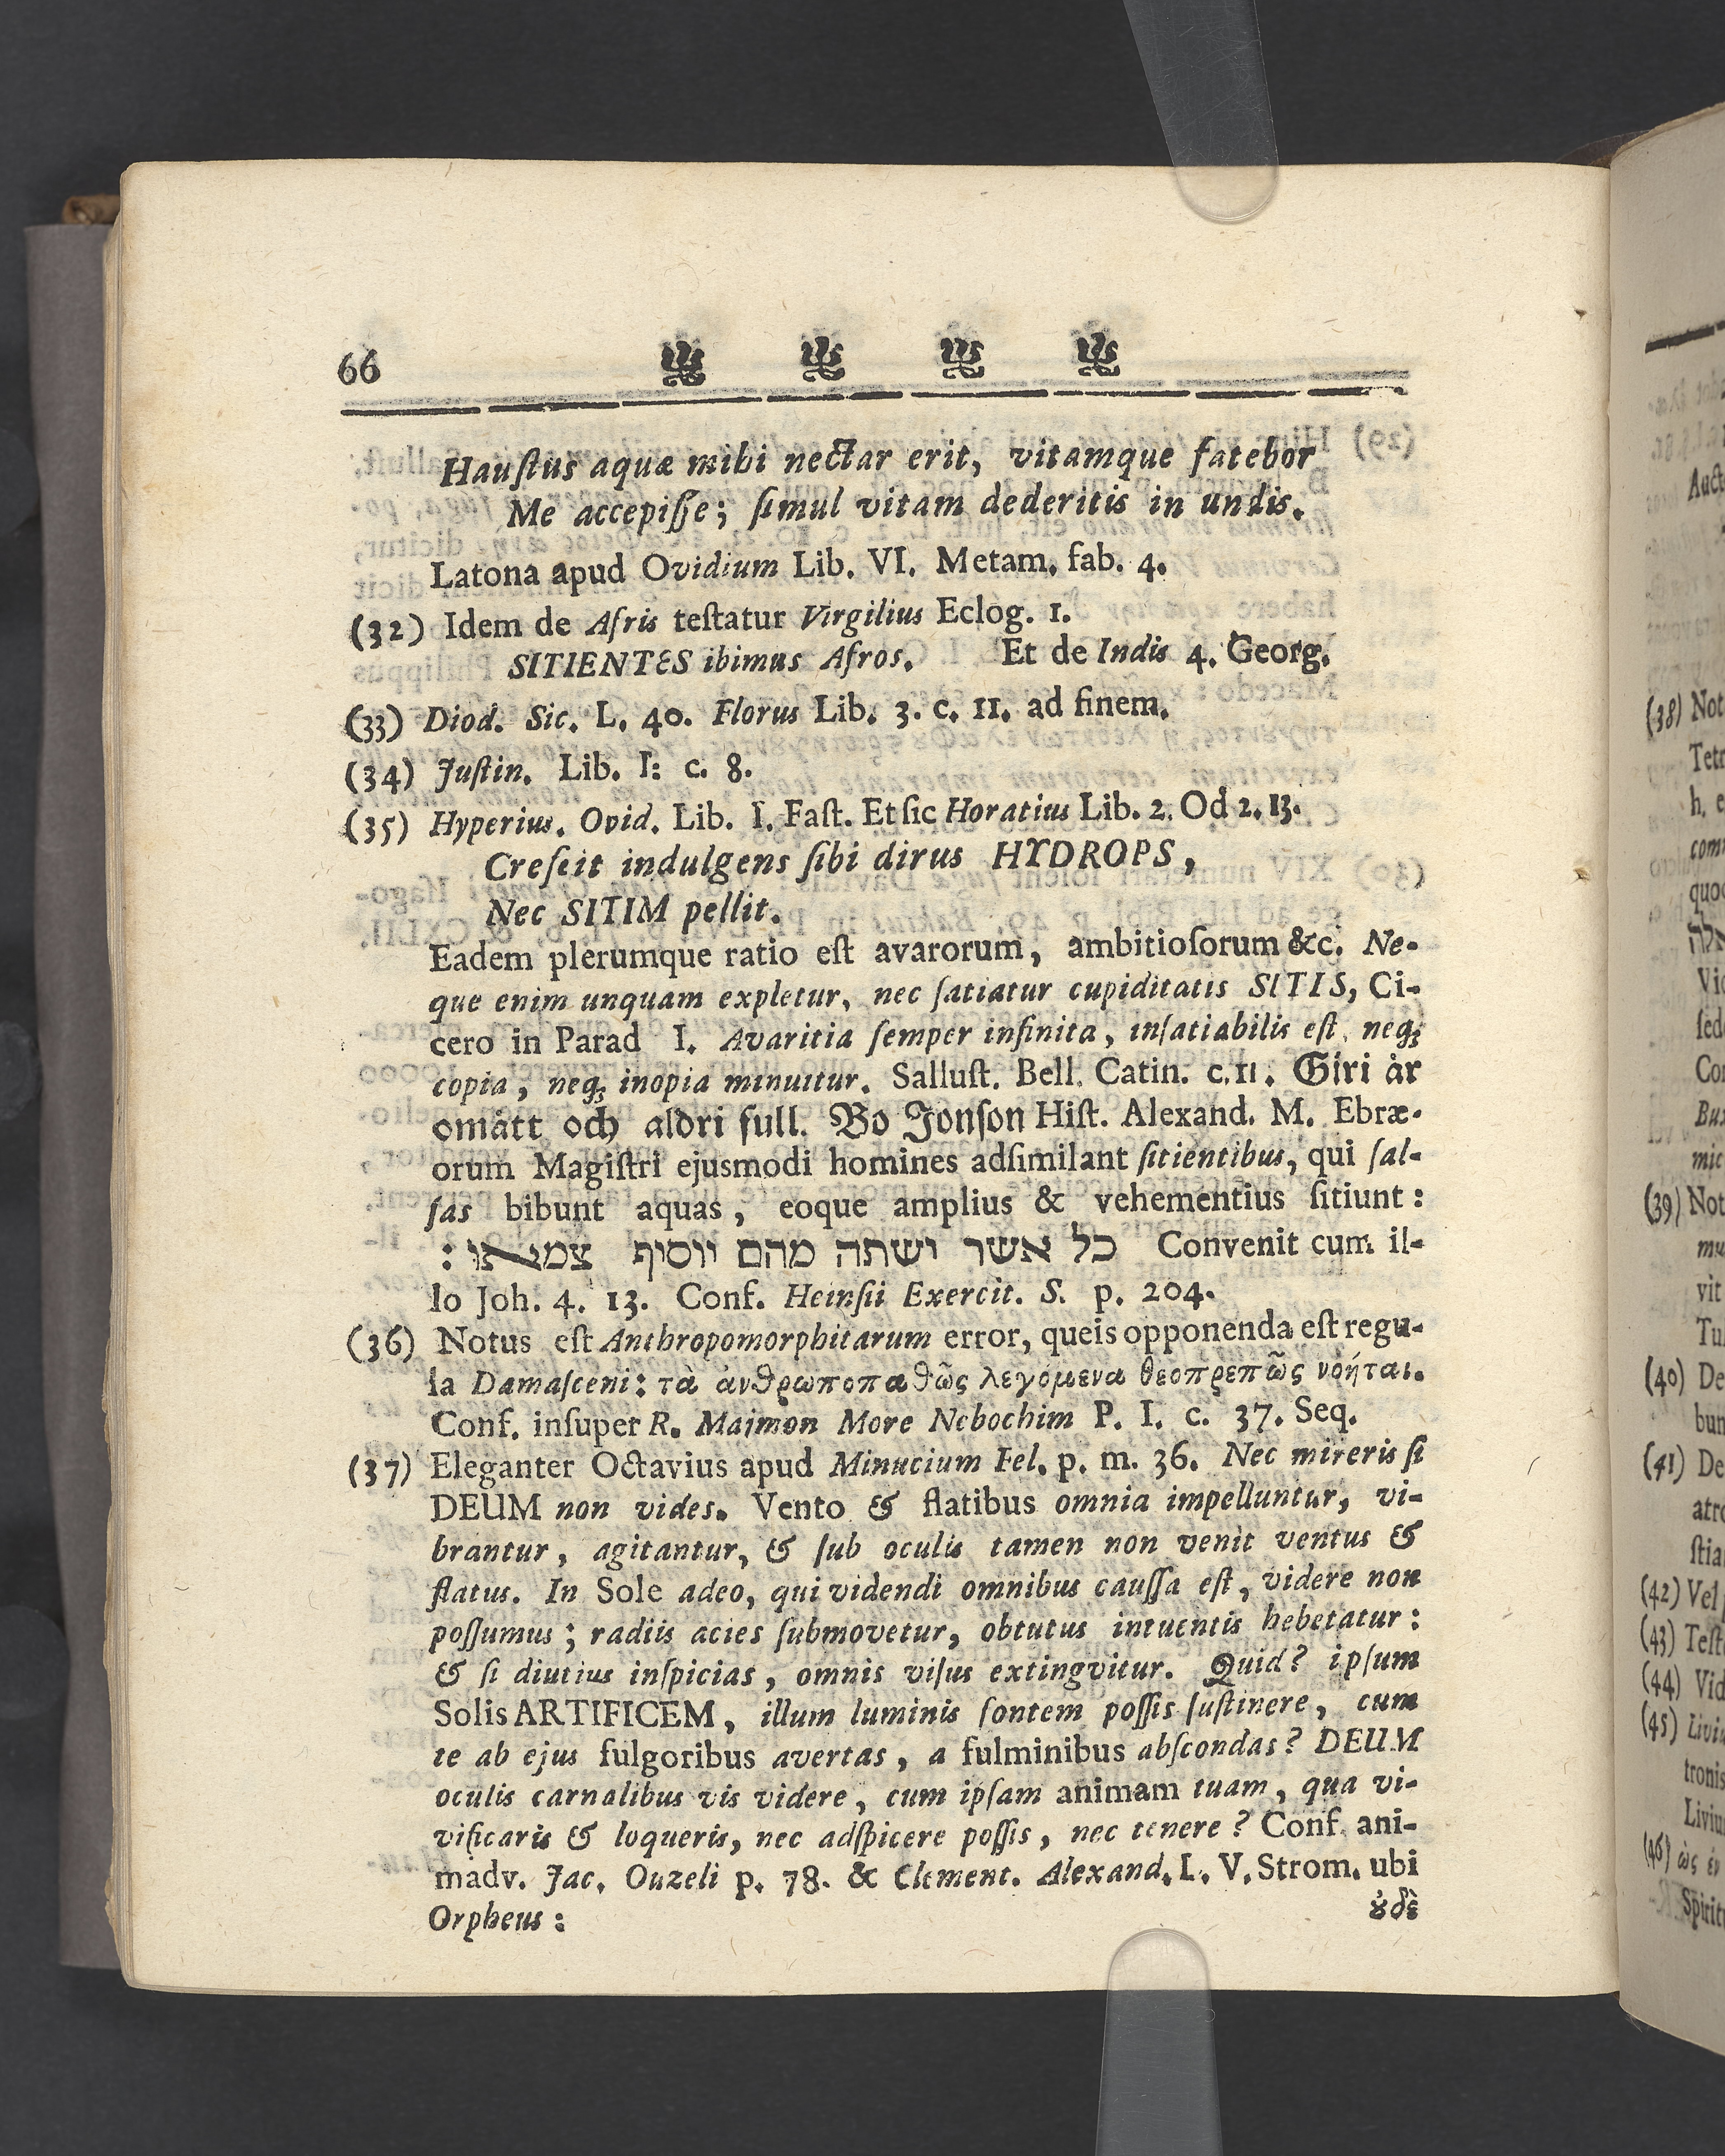 66
Hauſtus aquæ mihi nectar erit, vitamque fatebor
Me accepiſſe; ſimul vitam dederitis in undis.
Latona apud Ovidium Lib. VI. Metam. fab. 4.
(32) Idem de Afris teſtatur Virgilius Eclog. 1.
SITIENTES ibimus Afros. Et de Indis 4. Georg.
(33) Diod. Sic. L. 40. Florus Lib. 3. c. 11. ad finem.
(34) Juſtin. Lib. I: c. 8.
(35) Hyperius. Ovid. Lib. I. Faſt. Et ſic Horatius Lib. 2. Od 2. 13.
Creſcit indulgens ſibi dirus HYDROPS,
Nec SITIM pellit.
Eadem plerumque ratio eſt avarorum, ambitioſorum &c. Ne-
que enim unquam expletur, nec ſatiatur cupiditatis SITIS, Ci-
cero in Parad I. Avaritia ſemper infinita, inſatiabilis eſt, neq;
copia, neq; inopia minuitur. Salluſt. Bell. Catin. c. 11. Giri år
omått och aldri full. Bo Jonſon Hiſt. Alexand. M. Ebræ-
orum Magiſtri ejusmodi homines adſimilant ſitientibus, qui ſal-
ſas bibunt aquas, eoque amplius & vehementius ſitiunt:
כל אשר ישתה מהם יוסיף צמאו: Convenit cum il-
lo Joh. 4. 13. Conf. Heinſii Exercit. S. p. 204.
(36) Notus eſt Anthropomorphitarum error, queis opponenda eſt regu-
la Damaſceni: τὰ ἀνθρωποπαθῶς λεγόμενα θεοπρεπῶς νοήται.
Conf. inſuper R. Majmon More Nebochim P. I. c. 37. Seq.
(37) Eleganter Octavius apud Minucium Fel. p. m. 36. Nec mireris ſi
DEUM non vides. Vento & flatibus omnia impelluntur, vi-
brantur, agitantur, & ſub oculis tamen non venit ventus &
flatus. In Sole adeo, qui videndi omnibus cauſſa eſt, videre non
poſſumus; radiis acies ſubmovetur, obtutus intuentis hebetatur:
& ſi diutius inſpicias, omnis viſus extingvitur. Quid? ipſum
Solis ARTIFICEM, illum luminis fontem poſſis ſuſtinere, cum
te ab ejus fulgoribus avertas, a fulminibus abſcondas? DEUM
oculis carnalibus vis videre, cum ipſam animam tuam, qua vi-
vificaris & loqueris, nec adſpicere poſſis, nec tenere? Conf. ani-
madv. Jac. Ouzeli p. 78. & Clement. Alexand. L. V. Strom. ubi
Orpheus: ȣ̓δὲ
(38) Not
Tetr
(39) Not
(40) De
(41) De
(42) Vel
(43) Teſt
(44) Vid
(45) Livi
tronis
Liviu
(46) ὡς ἐν
Spirit